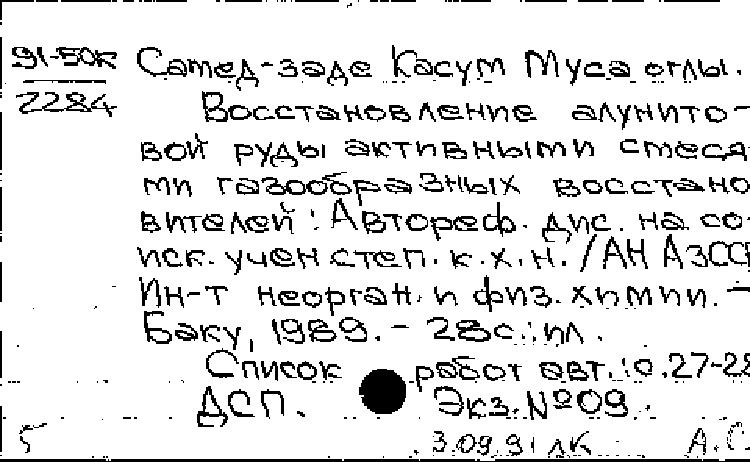 91-50к
2284
Самед-заде Касум Муса оглы.
Восстановление алунито-
вой руды активными смеся
ми газообразных восстано
вителей : Автореф. дис. на со-
иск. учен степ. к.х.н. / АН АзССР
Ин-т неорган. и физ. химии. -
Баку, 1989. - 28с.: ил.
Список работ авт.: с. 27-28
ДСП. Экз. №09.
5 3.09.91 ЛК А.С